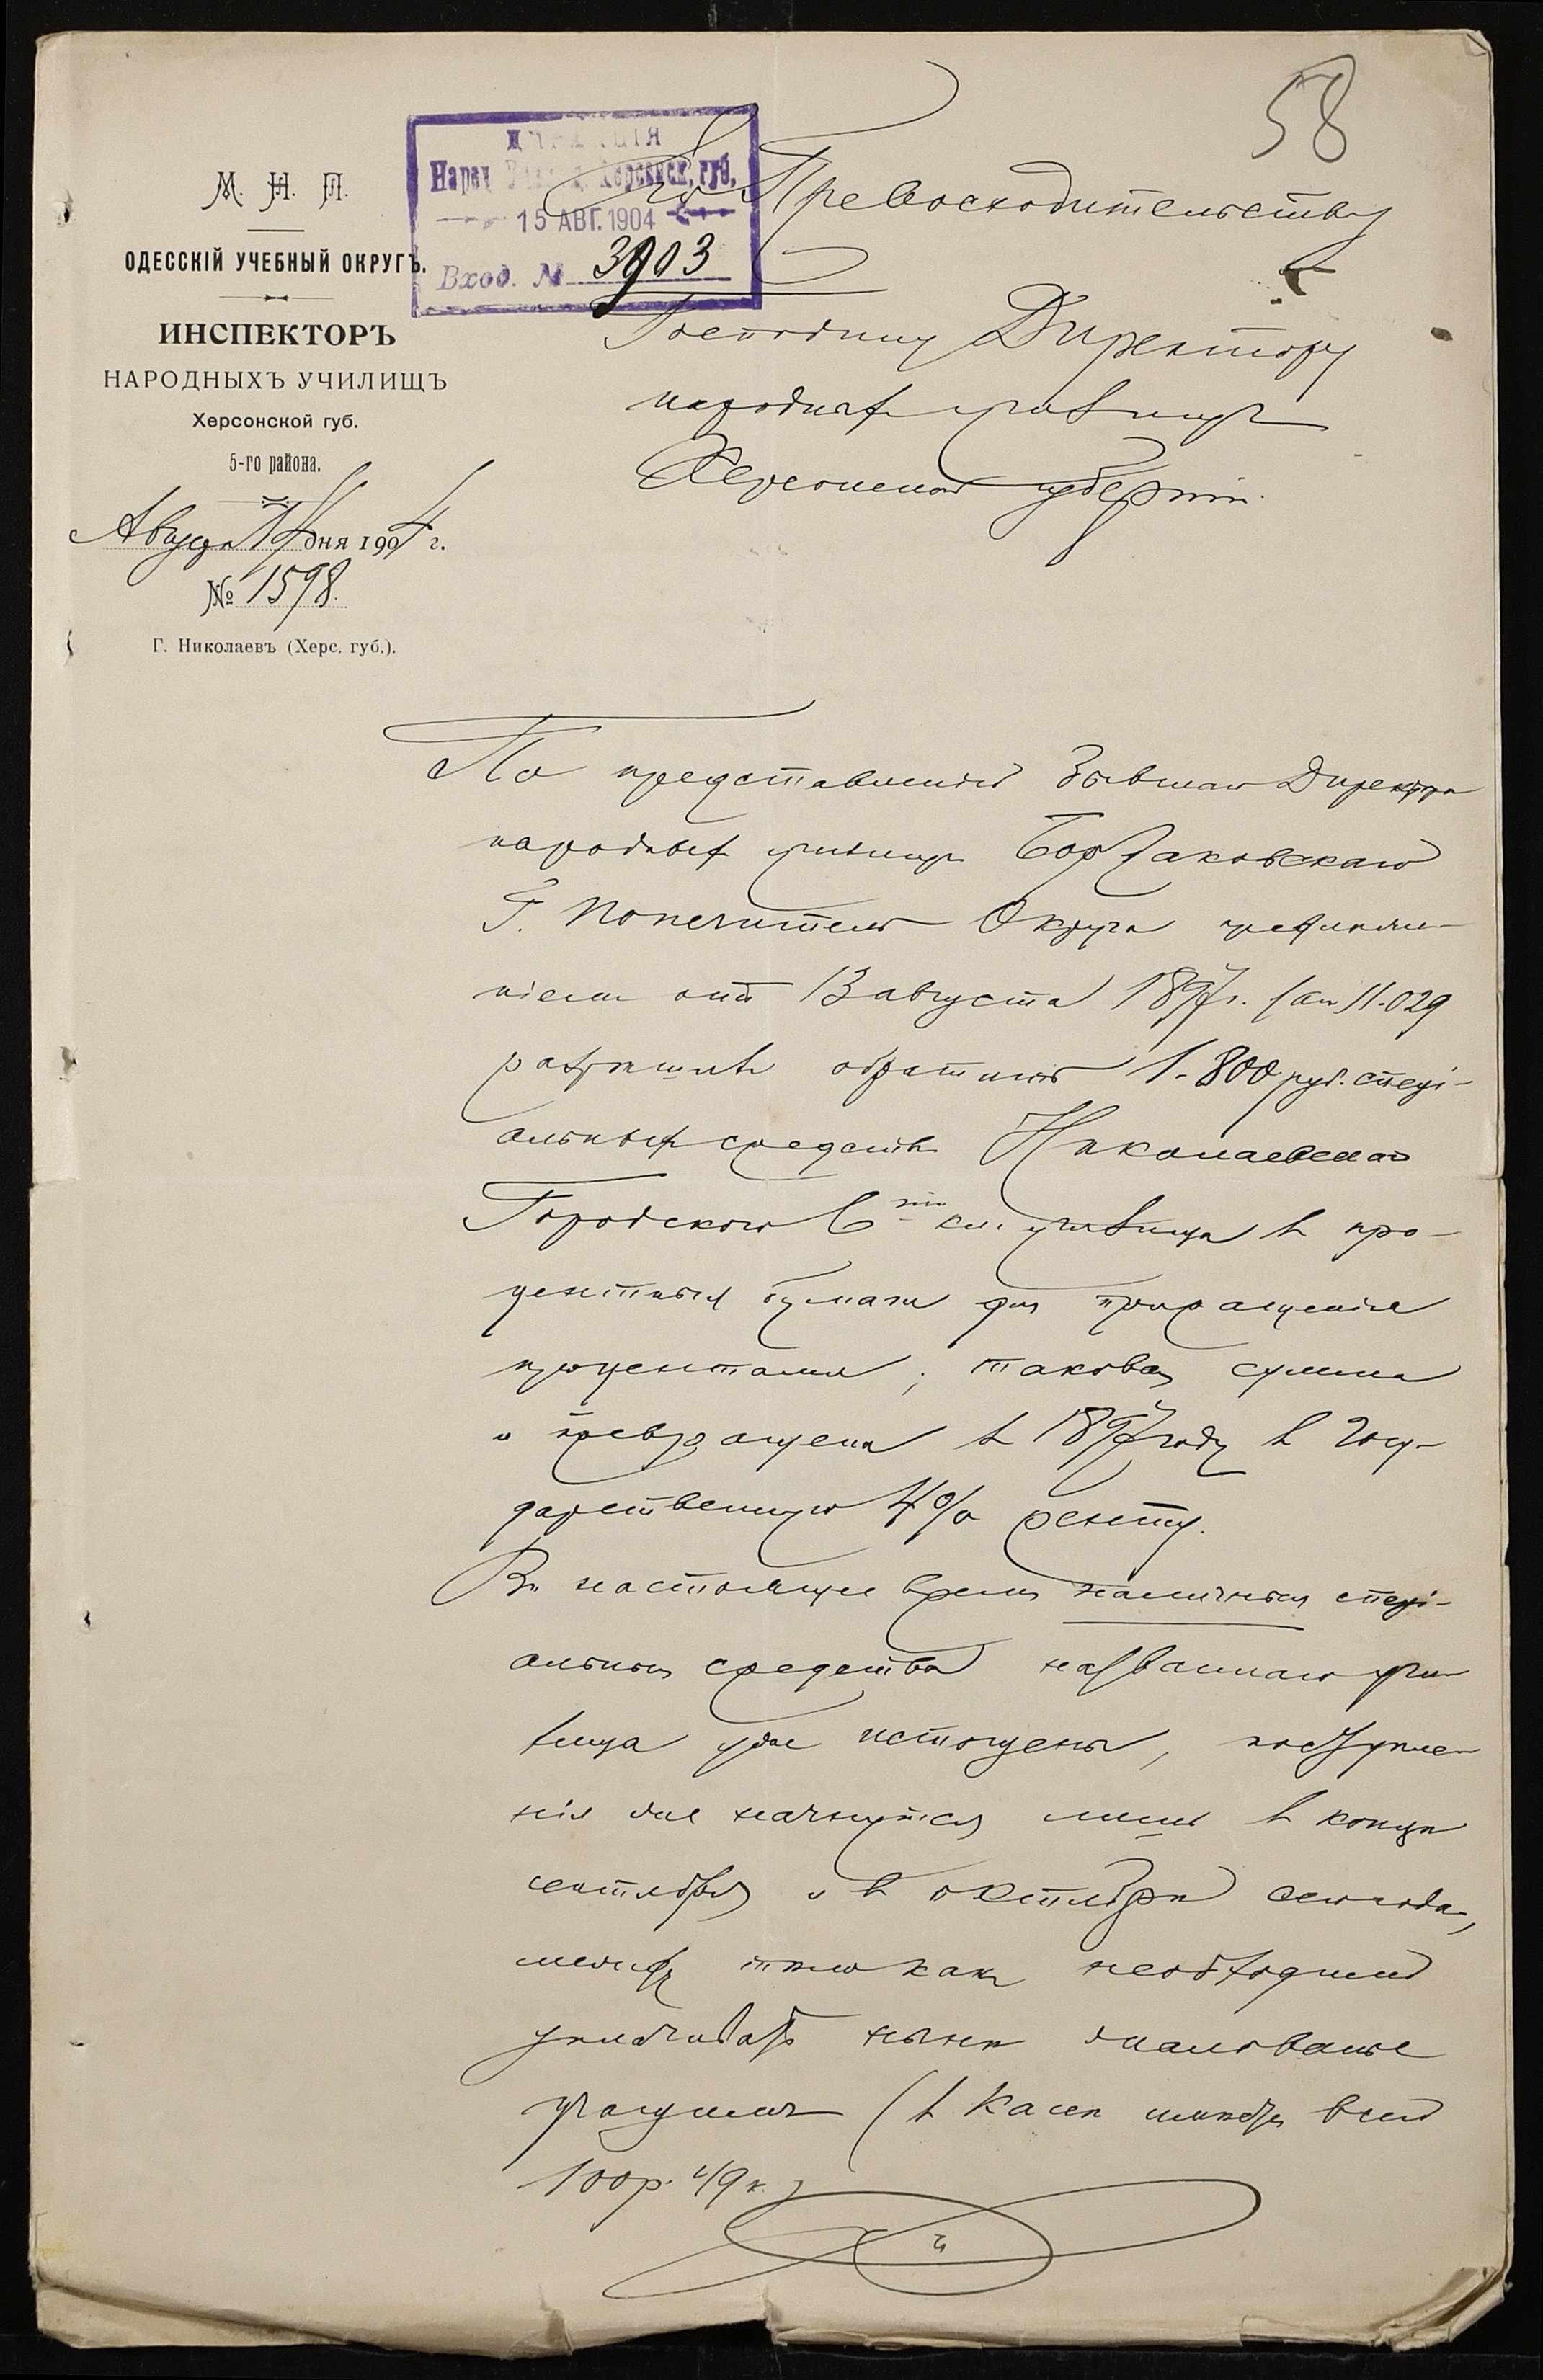 58
М. Н. П.
ОДЕССКІЙ УЧЕБНЫЙ ОКРУГЪ.
ИНСПЕКТОРЪ
НАРОДНЫХЪ УЧИЛИЩЪ
Херсонской губ.
5-го района.
Августа 14 дня 1904 г.
№ 1598.
Г. Николаевъ (Херс. губ.).
ДИРЕКЦІЯ
Народ. Херсонск. губ.
15 АВГ. 1904
Вход. № 3903
Его Превосходительству
Господину Директору
народныхъ училищъ
Херсонской губерніи.
По представленію бывшаго Директора
народныхъ училищъ Борзаковскаго
Г. Попечитель Округа предложе-
ніемъ отъ 13 августа 1897 г. за № 11.029
разрѣшилъ обратить 1.800 руб. спеці-
альныхъ средствъ Николаевскаго
Городского 6ти кл. училища въ про-
центныя бумаги для приращенія
процентами; таковая сумма
и превращена въ 1897 году въ Госу-
дарственную 4% ренту.
Въ настоящее время наличныя спеці-
альныя средства названнаго учи-
лища уже истощены, поступле-
нія же начнутся лишь въ концѣ
сентября и въ октябрѣ сего года,
между тѣмъ какъ необходимо
уплачивать нынѣ жалованье
учащимъ (въ кассѣ теперь всего
100 р. 49 к.)